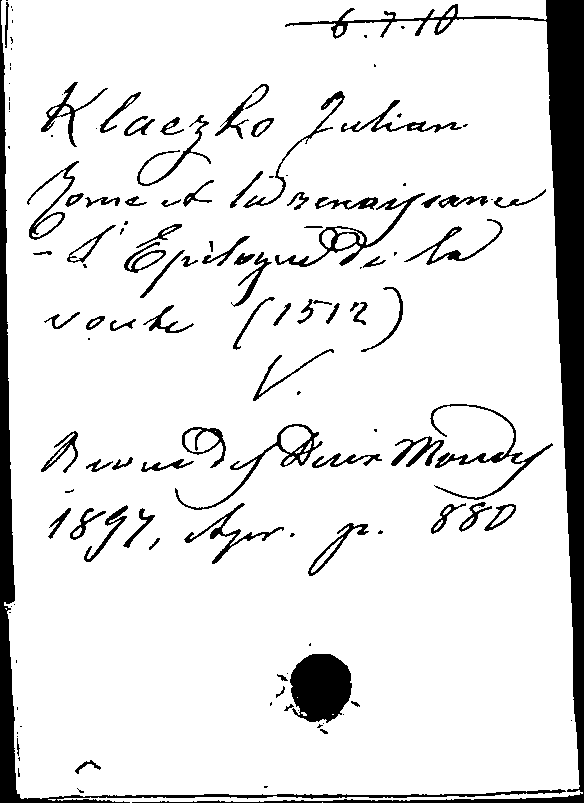 6.7.10
Klaczko Julian
Rome et la renaissance
- L'Epilogue de la
voute (1512)
V.
Revue des Deux Mondes
1897, Apr. p. 880